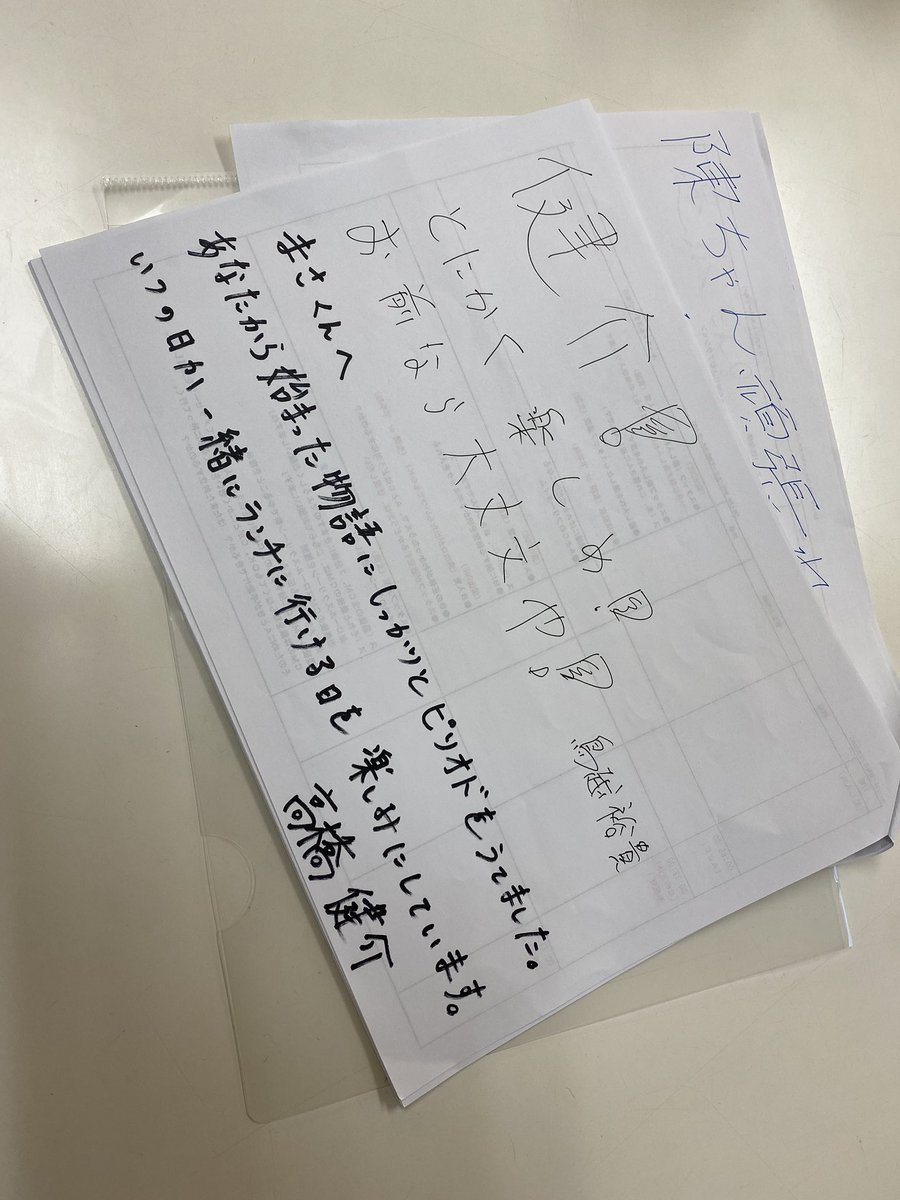 陳ちゃん頑張れ
健介!
とにかく楽しめ!
お前なら大丈夫や!
鳥越裕貴
まさくんへ
あなたから始まった物語にしっかりとピリオドをうてました。
いつの日か一緒にランチに行ける日を楽しみにしています。
高橋健介